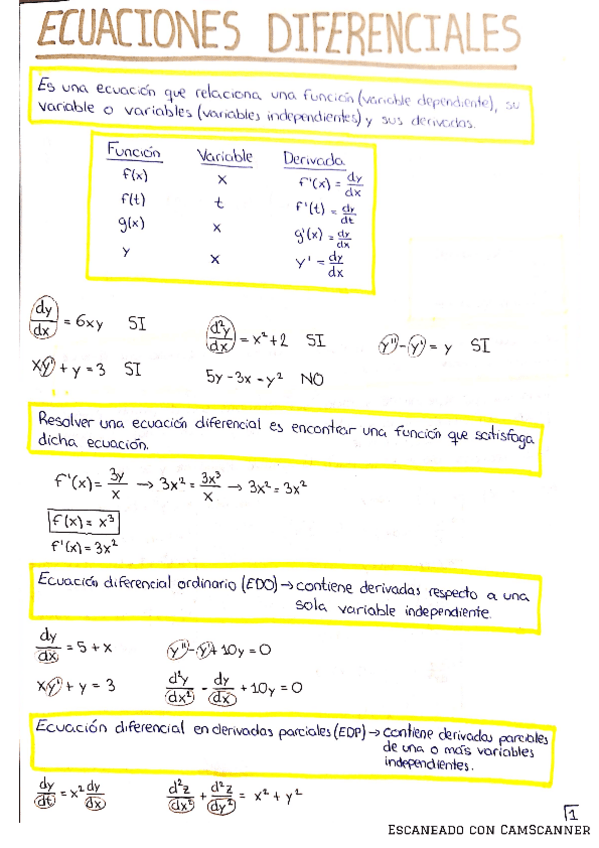 ECUACIONES DIFERENCIALES
Es una ecuación que relaciona una función (variable dependiente), su
variable o variables (variables independientes) y sus derivadas.
Función Variable Derivada
f(x) x f'(x) = dy/dx
f(t) t f'(t) = dy/dt
g(x) x g'(x) = dy/dx
y x y' = dy/dx
dy/dx = 6xy SI d²y/dx = x² + 2 SI y'' - y' = y SI
xy' + y = 3 SI 5y - 3x = y² NO
Resolver una ecuación diferencial es encontrar una función que satisfaga
dicha ecuación.
f'(x) = 3y/x → 3x² = 3x³/x → 3x² = 3x²
f(x) = x³
f'(x) = 3x²
Ecuación diferencial ordinario (EDO) → contiene derivadas respecto a una
sola variable independiente.
dy/dx = 5 + x y'' - y' + 10y = 0
xy' + y = 3 d²y/dx² - dy/dx + 10y = 0
Ecuación diferencial en derivadas parciales (EDP) → contiene derivadas parciales
de una o mais variables
independientes.
dy/dt = x² dy/dx d²z/dx² + d²z/dy² = x² + y²
1
ESCANEADO CON CAMSCANNER